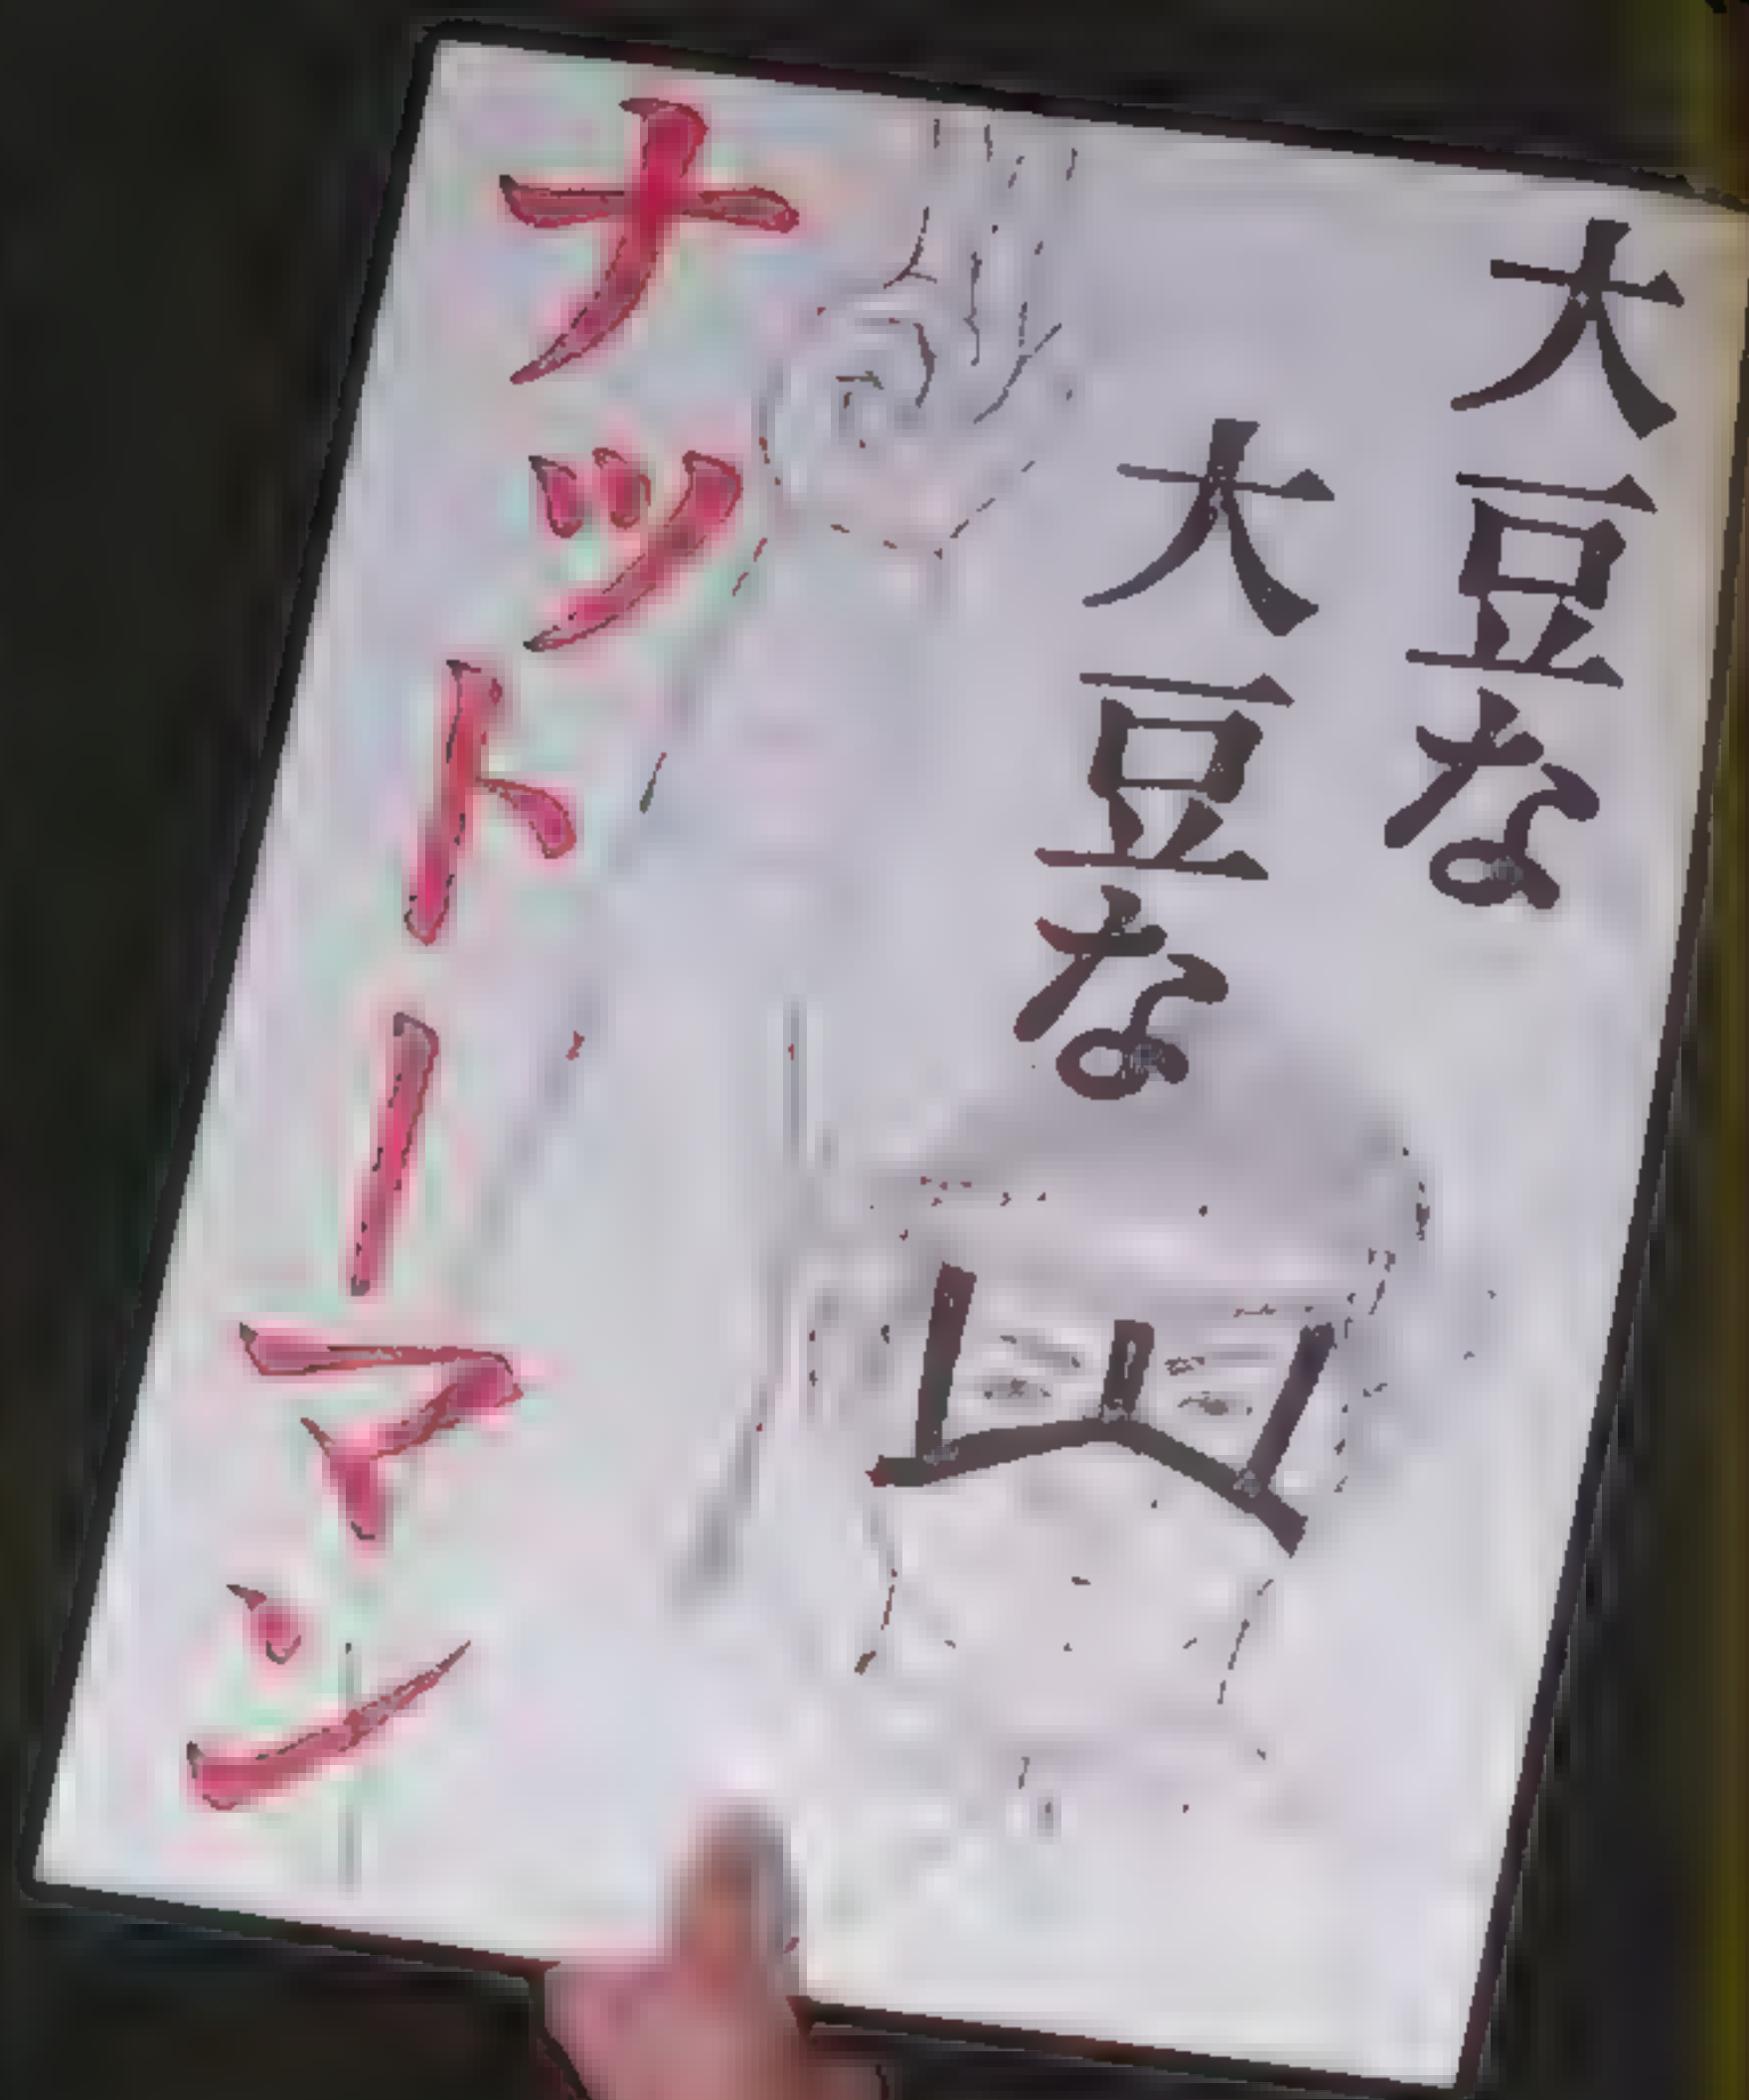 大豆な
大豆な
山
ナットーマン